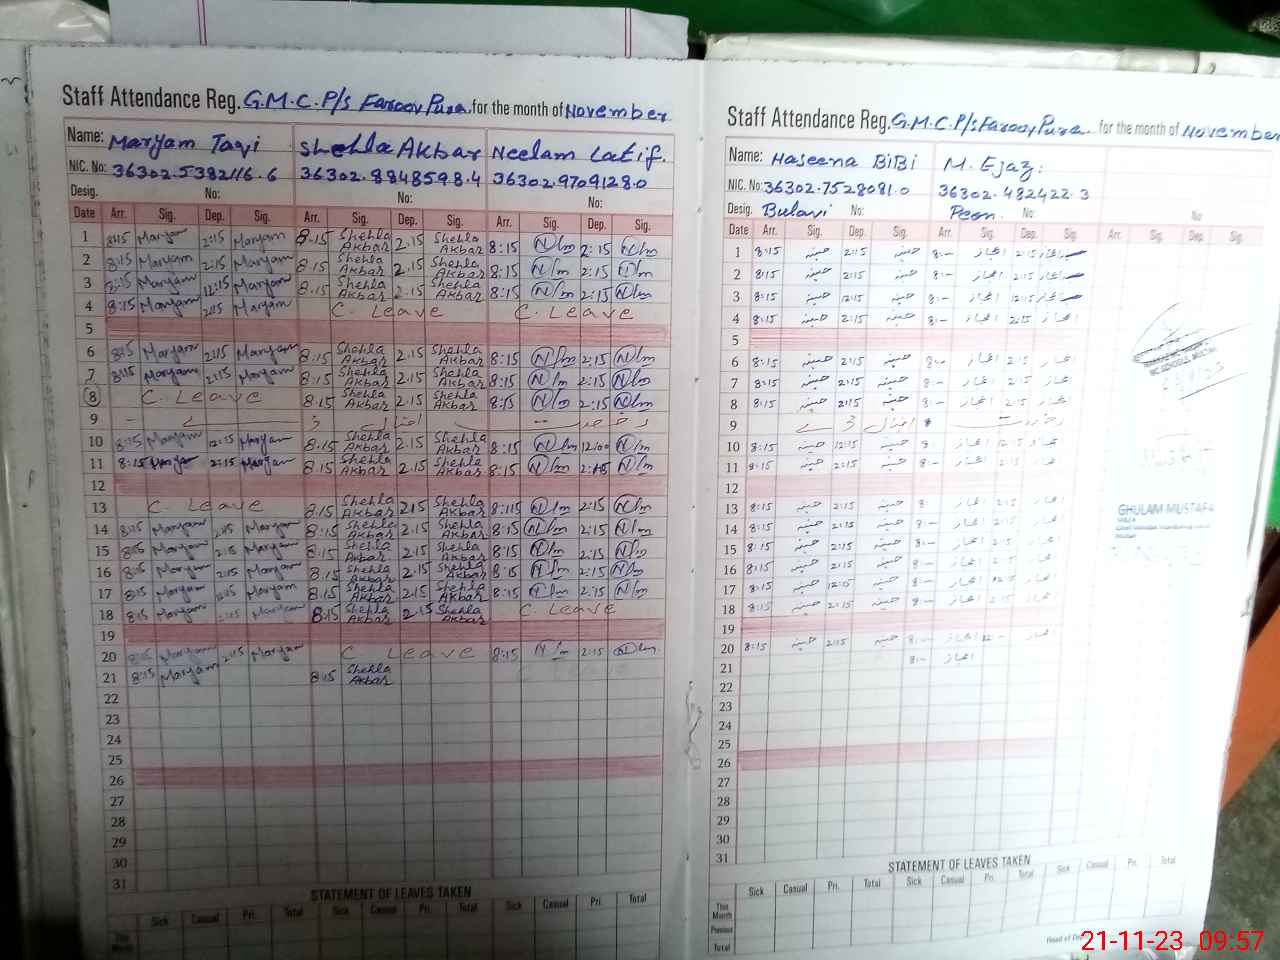 Staff Attendance Reg. G.M.C.P/s Farooq Pura for the month of November
Name: Maryam Taqi Shehla Akbar Neelam Latif.
NIC. No: 36302.5382116.6 36302.8848598.4 36302.9709128.0
Desig. No: No: No:
Date Arr. Sig. Dep. Sig. Arr. Sig. Dep. Sig. Arr. Sig. Dep. Sig.
1 8:15 Maryam 2:15 Maryam 8.15 Shehla Akbar 2.15 Shehla Akbar 8:15 N/m 2:15 N/m
2 8:15 Maryam 2:15 Maryam 8.15 Shehla Akbar 2.15 Shehla Akbar 8:15 N/m 2:15 N/m
3 8:15 Maryam 12:15 Maryam 8.15 Shehla Akbar 2.15 Shehla Akbar 8:15 N/m 2:15 N/m
4 8:15 Maryam 2:15 Maryam C. Leave C. Leave
5
6 8:15 Maryam 2:15 Maryam 8:15 Shehla Akbar 2.15 Shehla Akbar 8:15 N/m 2:15 N/m
7 8:15 Maryam 2:15 Maryam 8.15 Shehla Akbar 2.15 Shehla Akbar 8:15 N/m 2:15 N/m
8 C. Leave 8.15 Shehla Akbar 2.15 Shehla Akbar 8:15 N/m 2:15 N/m
9
10 8:15 Maryam 12:15 Maryam 8.15 Shehla Akbar 2.15 Shehla Akbar 8:15 N/m 12:00 N/m
11 8:15 Maryam 2:15 Maryam 8.15 Shehla Akbar 2.15 Shehla Akbar 8:15 N/m 2:15 N/m
12
13 C. Leave 8.15 Shehla Akbar 2.15 Shehla Akbar 8:15 N/m 2:15 N/m
14 8:15 Maryam 2:15 Maryam 8.15 Shehla Akbar 2.15 Shehla Akbar 8:15 N/m 2:15 N/m
15 8:15 Maryam 2:15 Maryam 8.15 Shehla Akbar 2.15 Shehla Akbar 8:15 N/m 2:15 N/m
16 8:15 Maryam 2:15 Maryam 8.15 Shehla Akbar 2.15 Shehla Akbar 8:15 N/m 2:15 N/m
17 8:15 Maryam Maryam 8.15 Shehla Akbar 2.15 Shehla Akbar 8:15 N/m 2:15 N/m
18 8:15 Maryam 2:15 Maryam 8.15 Shehla Akbar 2.15 Shehla Akbar C. Leave
19
20 8:15 Maryam 2:15 Maryam C. Leave 8:15 N/m 2:15 N/m
21 8:15 Maryam 8.15 Shehla Akbar
22
23
24
25
26
27
28
29
30
31
STATEMENT OF LEAVES TAKEN
Sick Casual Pri. Total Sick Casual Pri. Total Sick Casual Pri. Total
This Month
Staff Attendance Reg. G.M.C.P/s Farooq Pura. for the month of November
Name: Haseena BiBi M. Ejaz:
NIC. No: 36302.7528081.0 36302.482422.3
Desig. Bulavi No: Peon. No: No
Date Arr. Sig. Dep. Sig. Arr. Sig. Dep. Sig. Arr. Sig. Dep. Sig.
1 8:15 حسینہ 2:15 حسینہ 8:- اعجاز 2:15 اعجاز
2 8:15 حسینہ 2:15 حسینہ 8:- اعجاز 2:15 اعجاز
3 8:15 حسینہ 12:15 حسینہ 8:- اعجاز 12:15 اعجاز
4 8:15 حسینہ 2:15 حسینہ 8:- اعجاز 2:15 اعجاز
5
6 8:15 حسینہ 2:15 حسینہ 8:- اعجاز 2:15 اعجاز
7 8:15 حسینہ 2:15 حسینہ 8:- اعجاز 2:15 اعجاز
8 8:15 حسینہ 2:15 حسینہ 8:- اعجاز 2:15 اعجاز
9
10 8:15 حسینہ 12:15 حسینہ 8: اعجاز 12:15 اعجاز
11 8:15 حسینہ 2:15 حسینہ 8:- اعجاز 2:15 اعجاز
12
13 8:15 حسینہ 2:15 حسینہ 8:- اعجاز 2:15 اعجاز
14 8:15 حسینہ 2:15 حسینہ 8:- اعجاز 2:15 اعجاز
15 8:15 حسینہ 2:15 حسینہ 8:- اعجاز 2:15 اعجاز
16 8:15 حسینہ 2:15 حسینہ 8:- اعجاز 2:15 اعجاز
17 8:15 حسینہ 12:15 حسینہ 8:- اعجاز 12:15 اعجاز
18 8:15 حسینہ 2:15 حسینہ 8:- اعجاز 2:15 اعجاز
19
20 8:15 حسینہ 2:15 حسینہ 8:- اعجاز اعجاز
21 8:- اعجاز
22
23
24
25
26
27
28
29
30
31
GHULAM MUSTAFA
STATEMENT OF LEAVES TAKEN
Sick Casual Pri. Total Sick Casual Pri. Total Sick Casual Pri. Total
This Month
Previous
Total
Head of
21-11-23 09:57